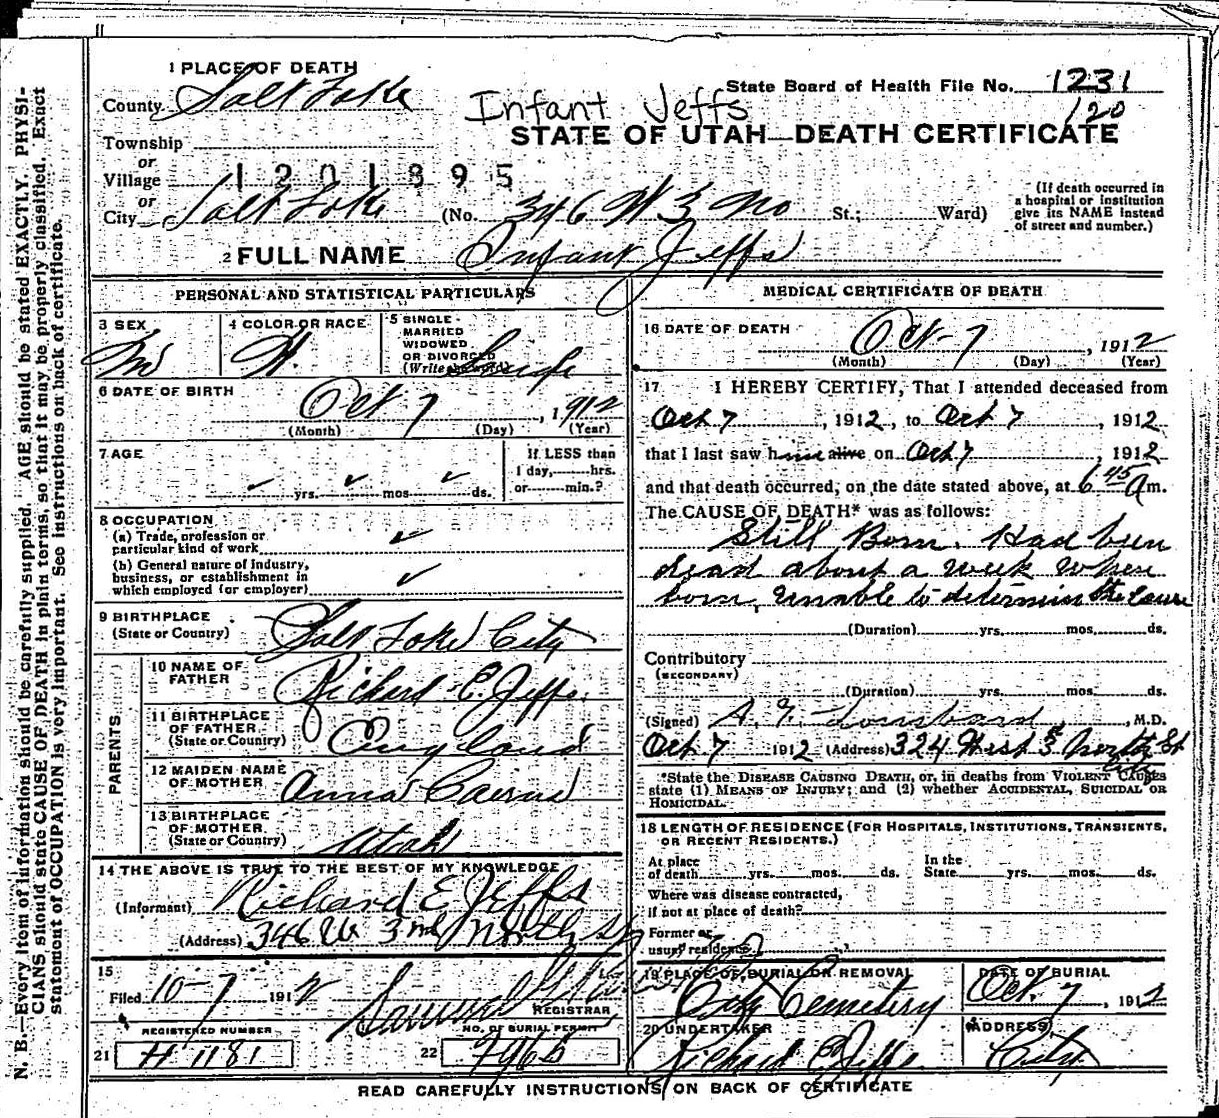 1 PLACE OF DEATH
County Salt Lake
State Board of Health File No. 1231
120
Infant Jeffs
STATE OF UTAH—DEATH CERTIFICATE
Township
or
Village
1201395
or
City Salt Lake (No. 346 W 3 No St.; Ward)
(If death occurred in a hospital or institution give its NAME instead of street and number.)
2 FULL NAME Infant Jeffs
PERSONAL AND STATISTICAL PARTICULARS
3 SEX M
4 COLOR OR RACE W.
5 SINGLE MARRIED WIDOWED OR DIVORCED (Write the word) Single
6 DATE OF BIRTH Oct 7, 1912
(Month) (Day) (Year)
7 AGE
yrs. mos. ds.
If LESS than 1 day, hrs. or min.?
8 OCCUPATION
(a) Trade, profession or particular kind of work
(b) General nature of industry, business, or establishment in which employed (or employer)
9 BIRTHPLACE (State or Country) Salt Lake City
PARENTS
10 NAME OF FATHER Richard E. Jeffs
11 BIRTHPLACE OF FATHER (State or Country) England
12 MAIDEN NAME OF MOTHER Anna Cairns
13 BIRTHPLACE OF MOTHER (State or Country) Utah
14 THE ABOVE IS TRUE TO THE BEST OF MY KNOWLEDGE
(Informant) Richard E Jeffs
(Address) 346 W 3rd North St
15
Filed 10-7 1912 Samuel
REGISTRAR
REGISTERED NUMBER
21 H 1181
NO. OF BURIAL PERMIT
22 7966
MEDICAL CERTIFICATE OF DEATH
16 DATE OF DEATH Oct-7, 1912
(Month) (Day) (Year)
17 I HEREBY CERTIFY, That I attended deceased from
Oct 7, 1912, to Oct 7, 1912
that I last saw him alive on Oct 7, 1912
and that death occurred, on the date stated above, at 6 45 A m.
The CAUSE OF DEATH* was as follows:
Still Born. Had been
dead about a week when
born, Unable to determin the cause
(Duration) yrs. mos. ds.
Contributory
(SECONDARY)
(Duration) yrs. mos. ds.
(Signed) M.D.
Oct 7 1912 (Address) 324 West 3 North St
City
*State the DISEASE CAUSING DEATH, or, in deaths from VIOLENT CAUSES
state (1) MEANS OF INJURY; and (2) whether ACCIDENTAL, SUICIDAL OR
HOMICIDAL.
18 LENGTH OF RESIDENCE (FOR HOSPITALS, INSTITUTIONS, TRANSIENTS,
OR RECENT RESIDENTS.)
At place of death yrs. mos. ds.
In the State yrs. mos. ds.
Where was disease contracted,
if not at place of death?
Former or
usual residence
19 PLACE OF BURIAL OR REMOVAL
City Cemetery
DATE OF BURIAL
Oct. 7, 1912
20 UNDERTAKER
Richard E Jeffs
ADDRESS
City
READ CAREFULLY INSTRUCTIONS ON BACK OF CERTIFICATE
N. B.—Every item of information should be carefully supplied. AGE should be stated EXACTLY. PHYSI-
CIANS should state CAUSE OF DEATH in plain terms, so that it may be properly classified. Exact
statement of OCCUPATION is very important. See instructions on back of certificate.